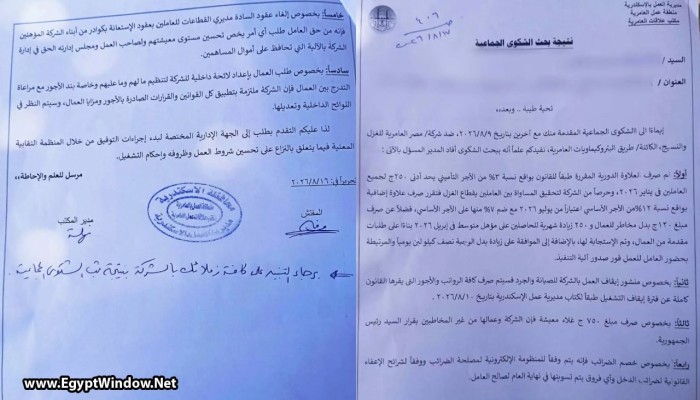 مديرية العمل بالإسكندرية
منطقة عمل العامرية
مكتب علاقات العامرية
٤٠٦
نتيجة بحث الشكوى الجماعية
السيد /
العنوان /
تحية طيبة .. وبعد،،
إيماءً الى الشكوى الجماعية المقدمة منك مع آخرين بتاريخ ٢٠٢٦/٨/٩، ضد شركة/ مصر العامرية للغزل
والنسيج، الكائنة/ طريق البتروكيماويات العامرية، نفيدكم علماً أنه ببحث الشكوى أفاد المدير المسؤل بالآتى :
أولاً: تم صرف العلاوة الدورية المقررة طبقاً للقانون بواقع نسبة ٣% من الأجر التأميني بحد أدنى ٢٥٠ج لجميع
العاملين في يناير ٢٠٢٦، وحرصاً من الشركة لتحقيق المساواة بين العاملين بقطاع الغزل فتقرر صرف علاوة إضافية
بواقع نسبة ١٢% من الأجر الأساسي إعتباراً من يوليو ٢٠٢٦ مع ضم ٧% منها على الأجر الأساسي، فضلاً عن صرف
مبلغ ١٢٠ج بدل مخاطر للعمال و ٢٥٠ زيادة شهرية للحاصلين على مؤهل متوسط في إبريل ٢٠٢٦ بناءً على طلبات
مقدمة من العمال، وتم الإستجابة لها، بالإضافة إلى الموافقة على زيادة بدل الوجبة نصف كيلو لبن يومياً والمرتبطة
بحضور العامل للعمل فور صدور آلية التنفيذ.
ثانياً: بخصوص منشور إيقاف العمل بالشركة للصيانة والجرد فسيتم صرف كافة الرواتب والأجور التي يقرها القانون
كاملة عن فترة إيقاف التشغيل طبقاً لكتاب مديرية عمل الإسكندرية بتاريخ ٢٠٢٦/٨/١٠.
ثالثاً: بخصوص صرف مبلغ ٧٥٠ ج غلاء معيشة فإن الشركة وعمالها من غير المخاطبين بقرار السيد رئيس
الجمهورية.
رابعاً: بخصوص خصم الضرائب فإنه يتم وفقاً للمنظومة الإلكترونية لمصلحة الضرائب ووفقاً لشرائح الإعفاء
القانونية لضرائب الدخل وأي فروق يتم تسويتها في نهاية العام لصالح العامل.
خامساً: بخصوص إلغاء عقود السادة مديري القطاعات للعاملين بعقود الإستعانة بكوادر من أبناء الشركة المؤهلين
فإنه من حق العامل طلب أي امر يخص تحسين مستوى معيشتهم ولصاحب العمل ومجلس إدارته الحق في إدارة
الشركة بالآلية التي تحافظ على أموال المساهمين.
سادساً: بخصوص طلب العمال بإعداد لائحة داخلية للشركة لتنظيم ما لهم وما عليهم وخاصة بند الأجور مع مراعاة
التدرج بين العمال فإن الشركة ملتزمة بتطبيق كل القوانين والقرارات الصادرة بالأجور ومزايا العمال، وسيتم النظر في
اللوائح الداخلية وتعديلها.
لذا عليكم التقدم بطلب إلى الجهة الإدارية المختصة لبدء إجراءات التوفيق من خلال المنظمة النقابية
المعنية فيما يتعلق بالنزاع على تحسين شروط العمل وظروفه وإحكام التشغيل.
مرسل للعلم والإحاطة،،
تحريراً في: ٢٠٢٦/٨/١٦
المفتش
مدير المكتب
برجاء التنبيه على كافة زملائك بالشركة بنتيجة بحث الشكوى الجماعية
www.EgyptWindow.Net